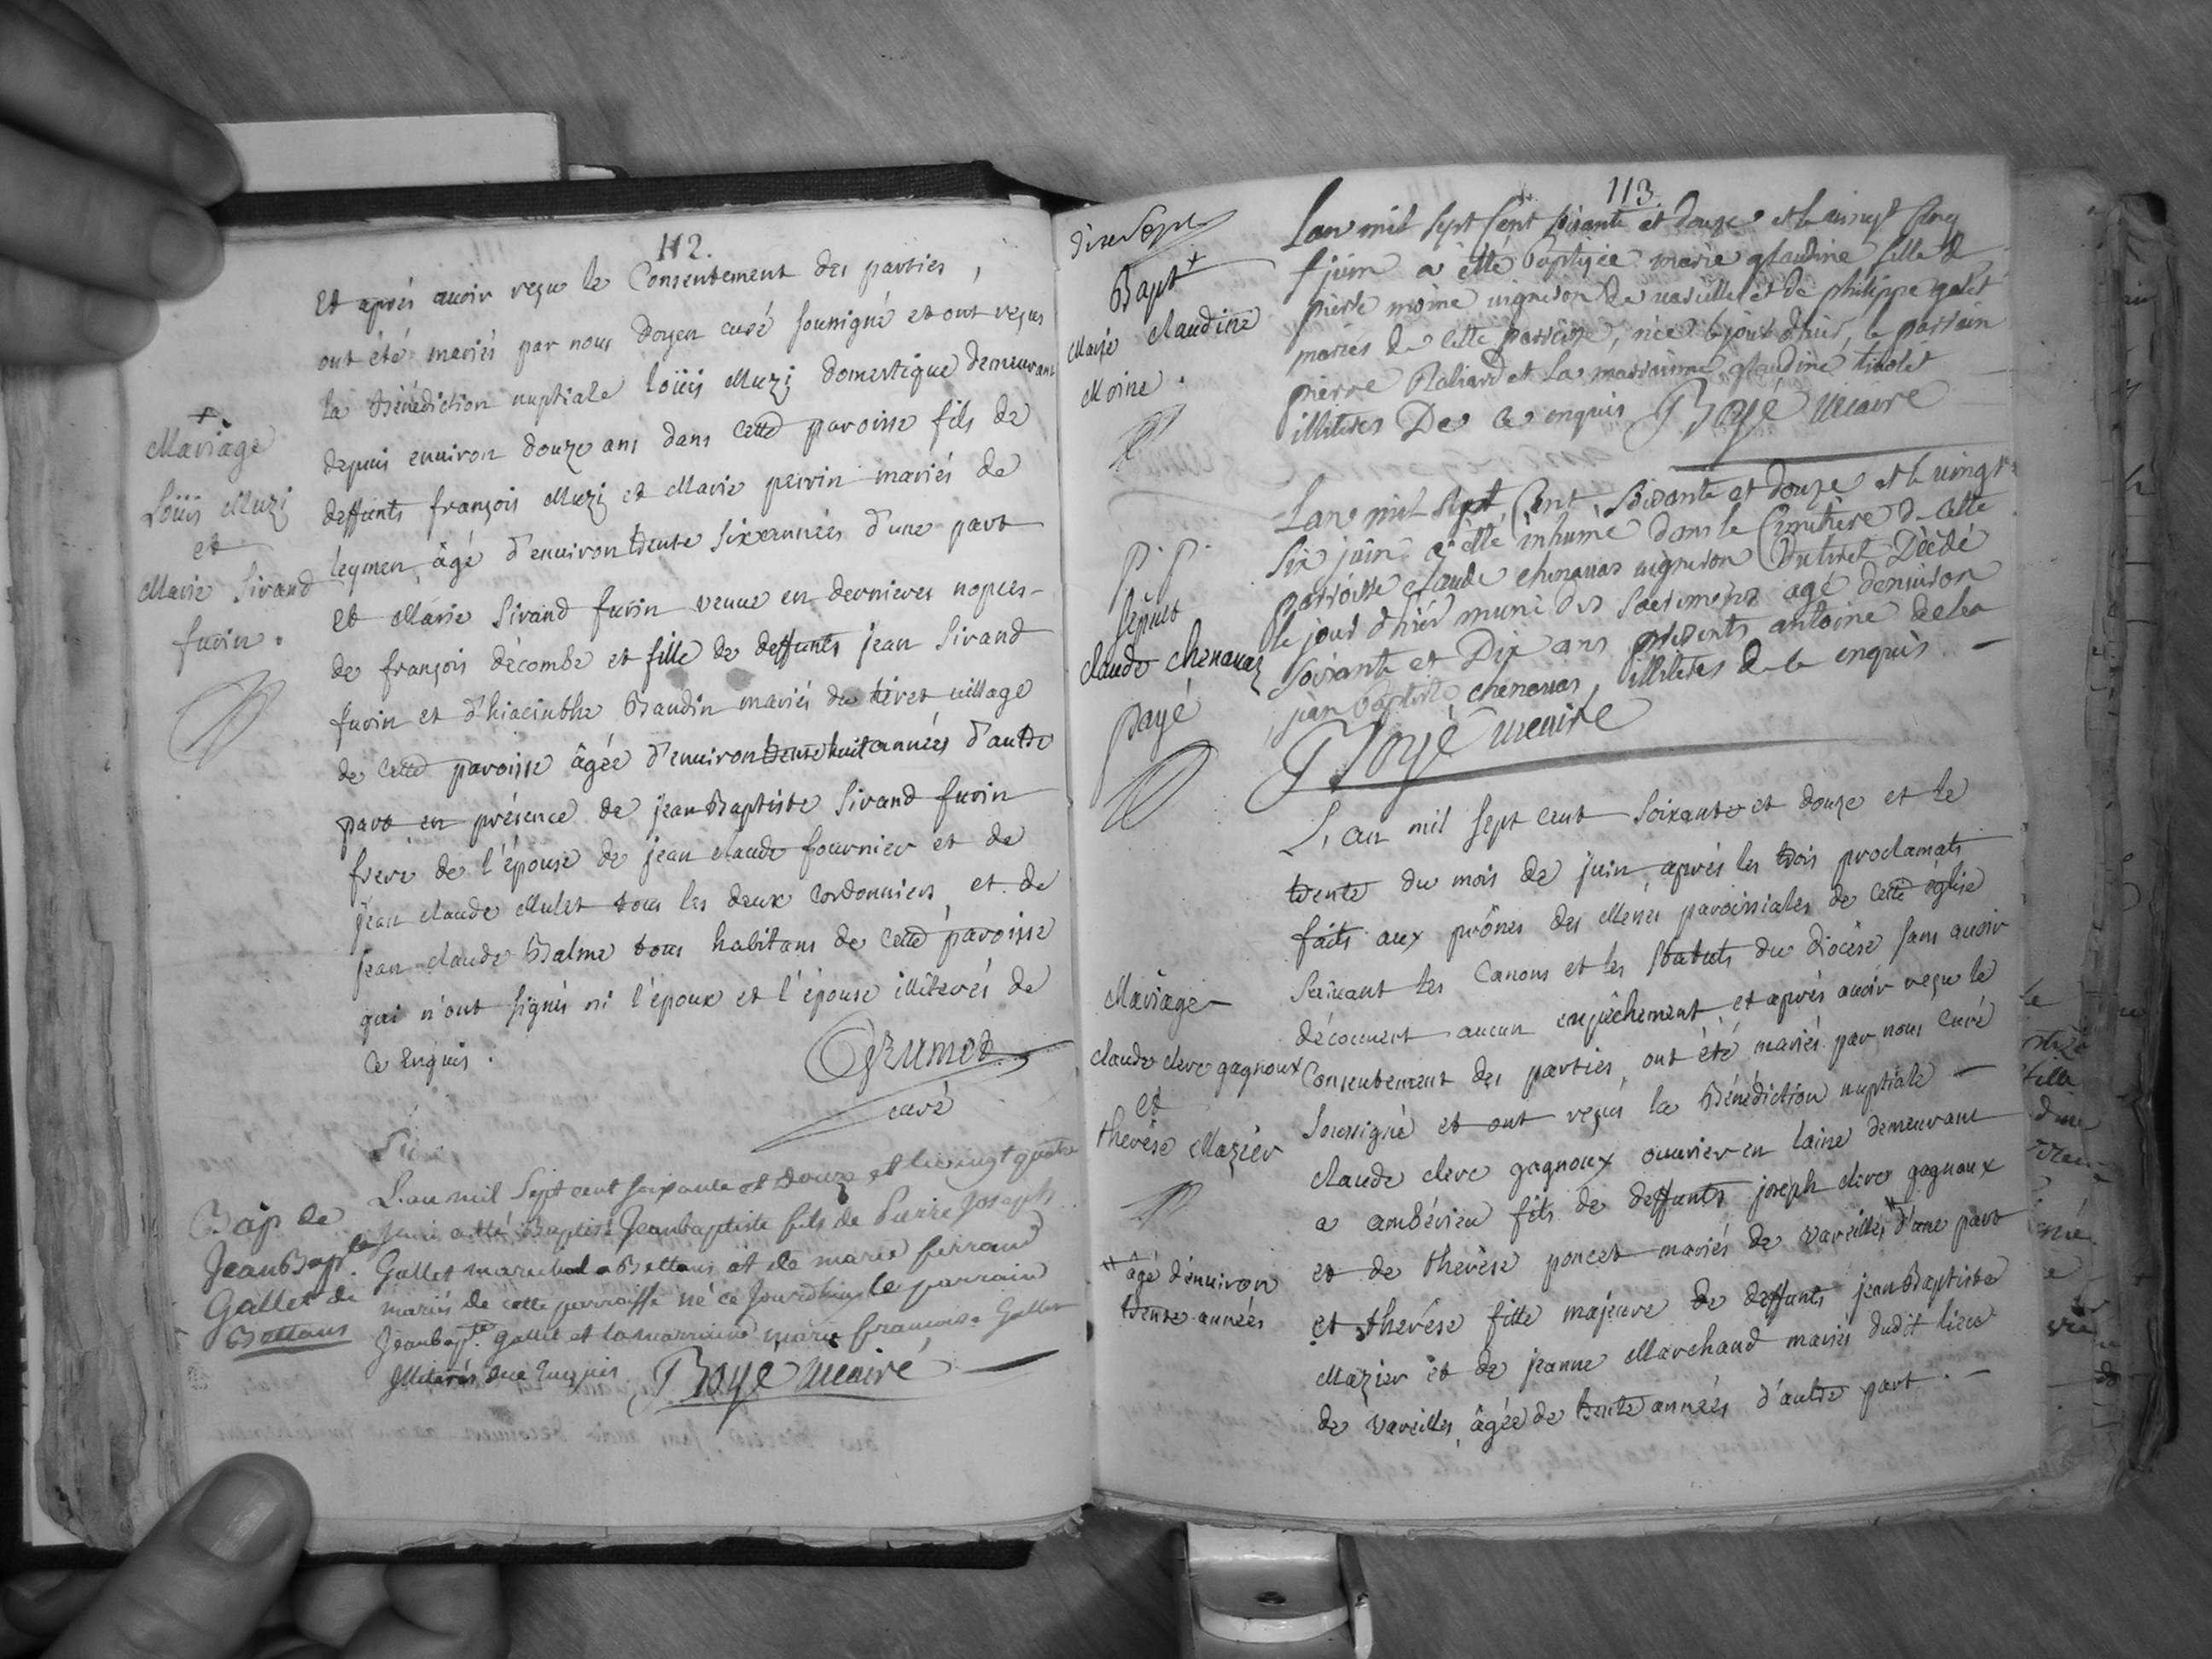 112.
Et aprés avoir reçu le Consentement des parties,
ont été mariés par nous doyen curé soussigné et ont reçus
la Bénédiction nuptiale loüis Muzi domestique demeurant
depuis environ douze ans dans cette paroisse fils de
deffunts françois Muzi et Marie perrin mariés de
leymen, âgé d'environ trente six années d'une part
et Marie Sirand furin veuve en dernieres nopces
de françois décombe et fille de deffunts jean Sirand
furin et d'hiacinthe Baudin mariés du tiret village
de cette paroisse âgée d'environ trente huit années d'autre
part en présence de jean Baptiste Sirand furin
frere de l'épouse de jean claude fournier et de
jean claude Mulet tous les deux Cordonniers, et de
jean claude Balme tous habitans de cette paroisse
qui n'ont signés ni l'époux et l'épouse illiterés de
ce Enquis.
Mariage
Loüis Muzi
et
Marie Sirand
furin.
Grumet
curé
L'an mil Sept cent soixante et douze et le vingt quatre
juin a eté Baptisé Jeanbaptiste fils de Pierre Joseph
Gallet marechal a Bettans et de marie ferrand
mariés de cette parroisse né ce jourdhuy le parrain
Jeanbapte. Gallet et la marraine marie francoise Gallet
illiterés de ce Enquis. Boyé vicaire
Bap de
Jean Bapte.
Gallet de
Bettans
113.
Lan mil sept Cent soixante et douze et le vingt cinq
juin a êtté baptizée marie claudine fille de
pierre moine vigneron de vareilles et de philippe galet
mariés de cette parroisse, née le jour d'hier, le parrain
pierre Raliard et la marraine claudine tirolet
illiterés De ce enquis Boyé vicaire
dixsept
Bapt
Marie Claudine
Moine.
Lan mil sept Cent soixante et douze et le vingt
six juin a êtté inhumé dans le Cimetiere de cette
parroisse claude chenavas vigneron du tiret Décédé
le jour d'hier muni des sacrements agé d'environ
soixante et Dix ans présents antoine
jean baptiste chenavas, illiterés de ce enquis
Boyé vicaire
p. p.
sepult
Claude Chenavaz
payé
L'an mil sept cent soixante et douze et le
trente du mois de juin, aprés les trois proclamats
faits aux prônes des Messes paroissiales de cette église
Suivant les Canons et les Statuts du diocèse sans avoir
découvert aucun empêchement et aprés avoir reçu le
Consentement des parties, ont été mariés par nous Curé
Soussigné et ont reçus la Bénédiction nuptiale
claude clerc gagnoux ouvrier en laine demeurant
a ambérieu fils de deffunts joseph clerc gagnoux
et de thérèse poncet mariés de vareilles d'une part
et thérése fille majeure de deffunts jean Baptiste
Mazier et de jeanne Marchand mariés dudit lieu
de vareilles, âgée de trente années d'autre part.
Mariage
claude clerc gagnoux
et
thérèse Mazier
âgé d'environ
trente années